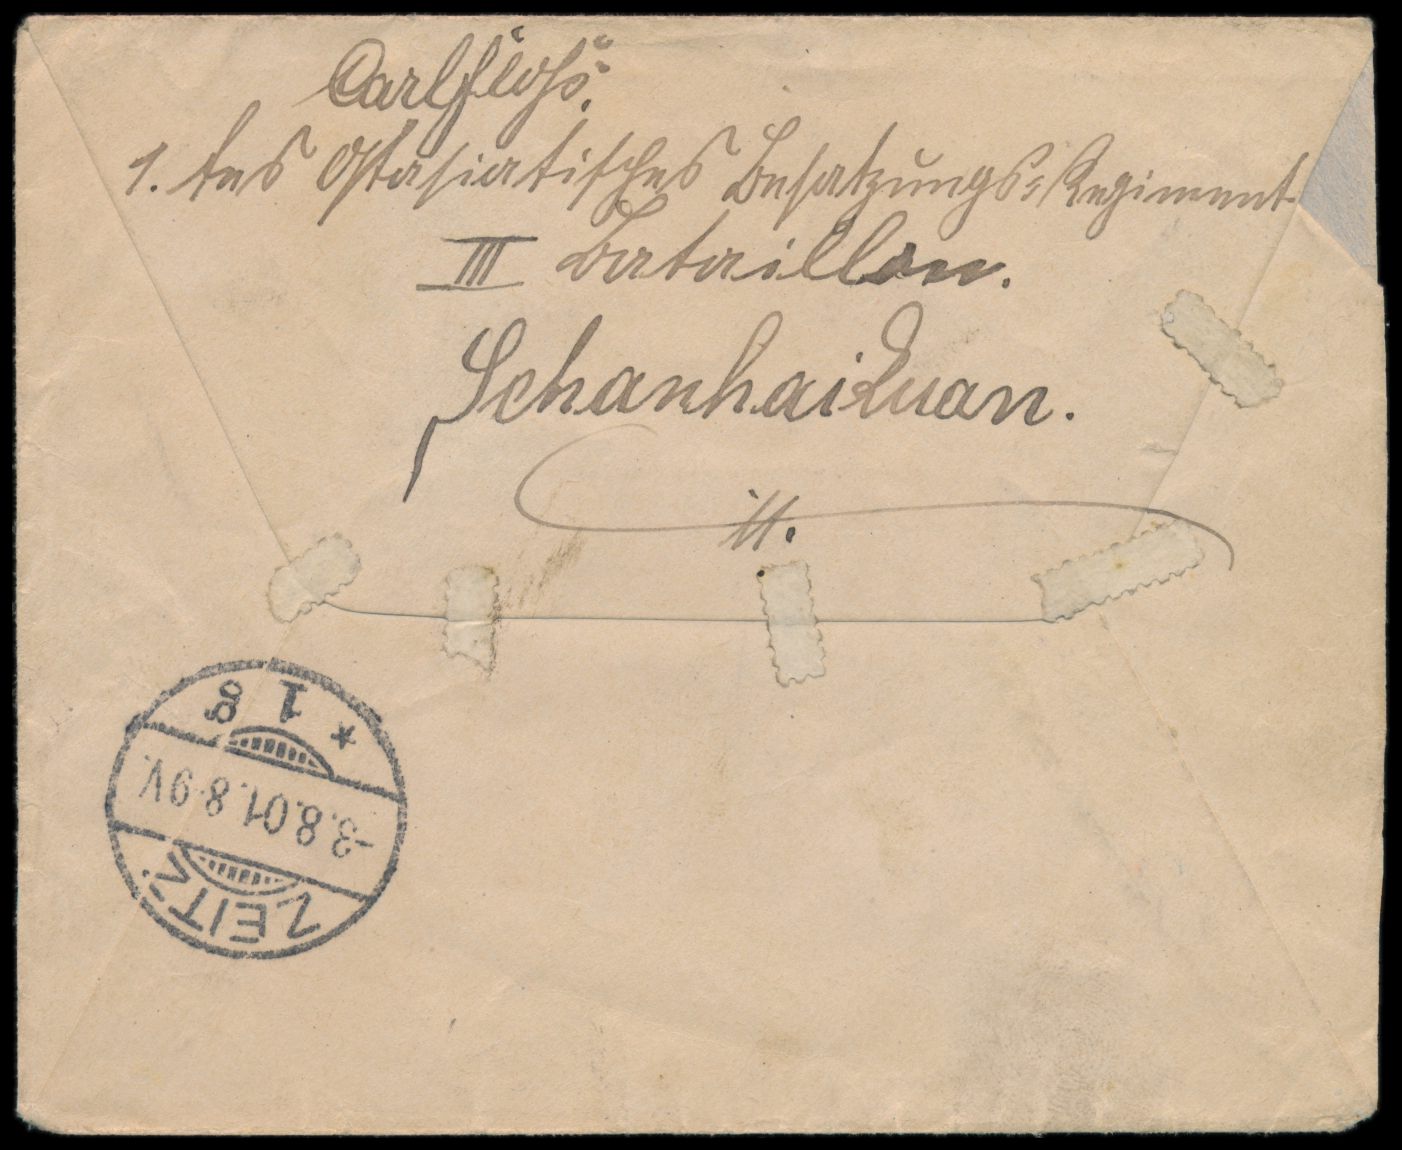 Carl Flöß.
1. des Ostasiatisches Besatzungs-Regiment
III Bataillon.
Schanhaikuan.
* 1 g
-3.8.01.8-9V.
ZEITZ.